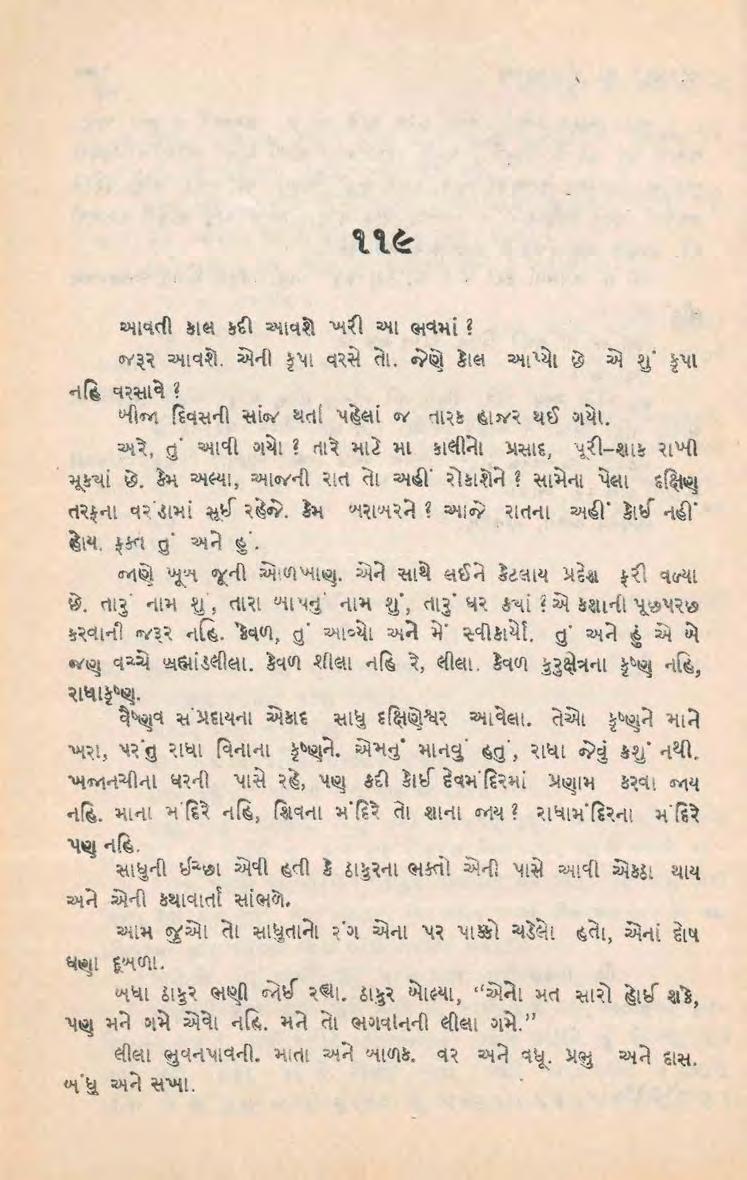 ૧૧૯
આવતી કાલ કદી આવશે ખરી આ ભવમાં ?
જરૂર આવશે. એની કૃપા વરસે તો. જેણે કૉલ આપ્યો છે એ શું કૃપા
નહિ વરસાવે ?
બીજા દિવસની સાંજ થતાં પહેલાં જ તારક હાજર થઈ ગયો.
અરે, તું આવી ગયો ? તારે માટે મા કાલીનો પ્રસાદ, પૂરી–શાક રાખી
મૂક્યાં છે. કેમ અલ્યા, આજની રાત તો અહીં રોકાશેને ? સામેના પેલા દક્ષિણ
તરફના વરંડામાં સૂઈ રહેજે. કેમ બરાબરને ? આજે રાતના અહીં કોઈ નહીં
હોય. ફક્ત તું અને હું.
જાણે ખૂબ જૂની ઓળખાણ. એને સાથે લઈને કેટલાય પ્રદેશ ફરી વળ્યા
છે. તારું નામ શું, તારા બાપનું નામ શું, તારું ઘર ક્યાં ? એ કશાની પૂછપરછ
કરવાની જરૂર નહિ. કેવળ, તું આવ્યો અને મેં સ્વીકાર્યો. તું અને હું એ બે
જણ વચ્ચે બ્રહ્માંડલીલા. કેવળ શીલા નહિ રે, લીલા. કેવળ કુરુક્ષેત્રના કૃષ્ણ નહિ,
રાધાકૃષ્ણ.
વૈષ્ણવ સંપ્રદાયના એકાદ સાધુ દક્ષિણેશ્વર આવેલા. તેઓ કૃષ્ણને માને
ખરા, પરંતુ રાધા વિનાના કૃષ્ણને. એમનું માનવું હતું, રાધા જેવું કશું નથી.
ખજાનચીના ઘરની પાસે રહે, પણ કદી કોઈ દેવમંદિરમાં પ્રણામ કરવા જાય
નહિ. માના મંદિરે નહિ, શિવના મંદિરે તો શાના જાય ? રાધામંદિરના મંદિરે
પણ નહિ.
સાધુની ઈચ્છા એવી હતી કે ઠાકુરના ભક્તો એની પાસે આવી એકઠા થાય
અને એની કથાવાર્તા સાંભળે.
આમ જુઓ તો સાધુતાનો રંગ એના પર પાક્કો ચડેલો હતો, એનાં દોષ
ઘણા દૂબળા.
બધા ઠાકુર ભણી જોઈ રહ્યા. ઠાકુર બોલ્યા, “એનો મત સારો હોઈ શકે,
પણ મને ગમે એવો નહિ. મને તો ભગવાનની લીલા ગમે.”
લીલા ભુવનપાવની. માતા અને બાળક. વર અને વધૂ. પ્રભુ અને દાસ.
બંધુ અને સખા.